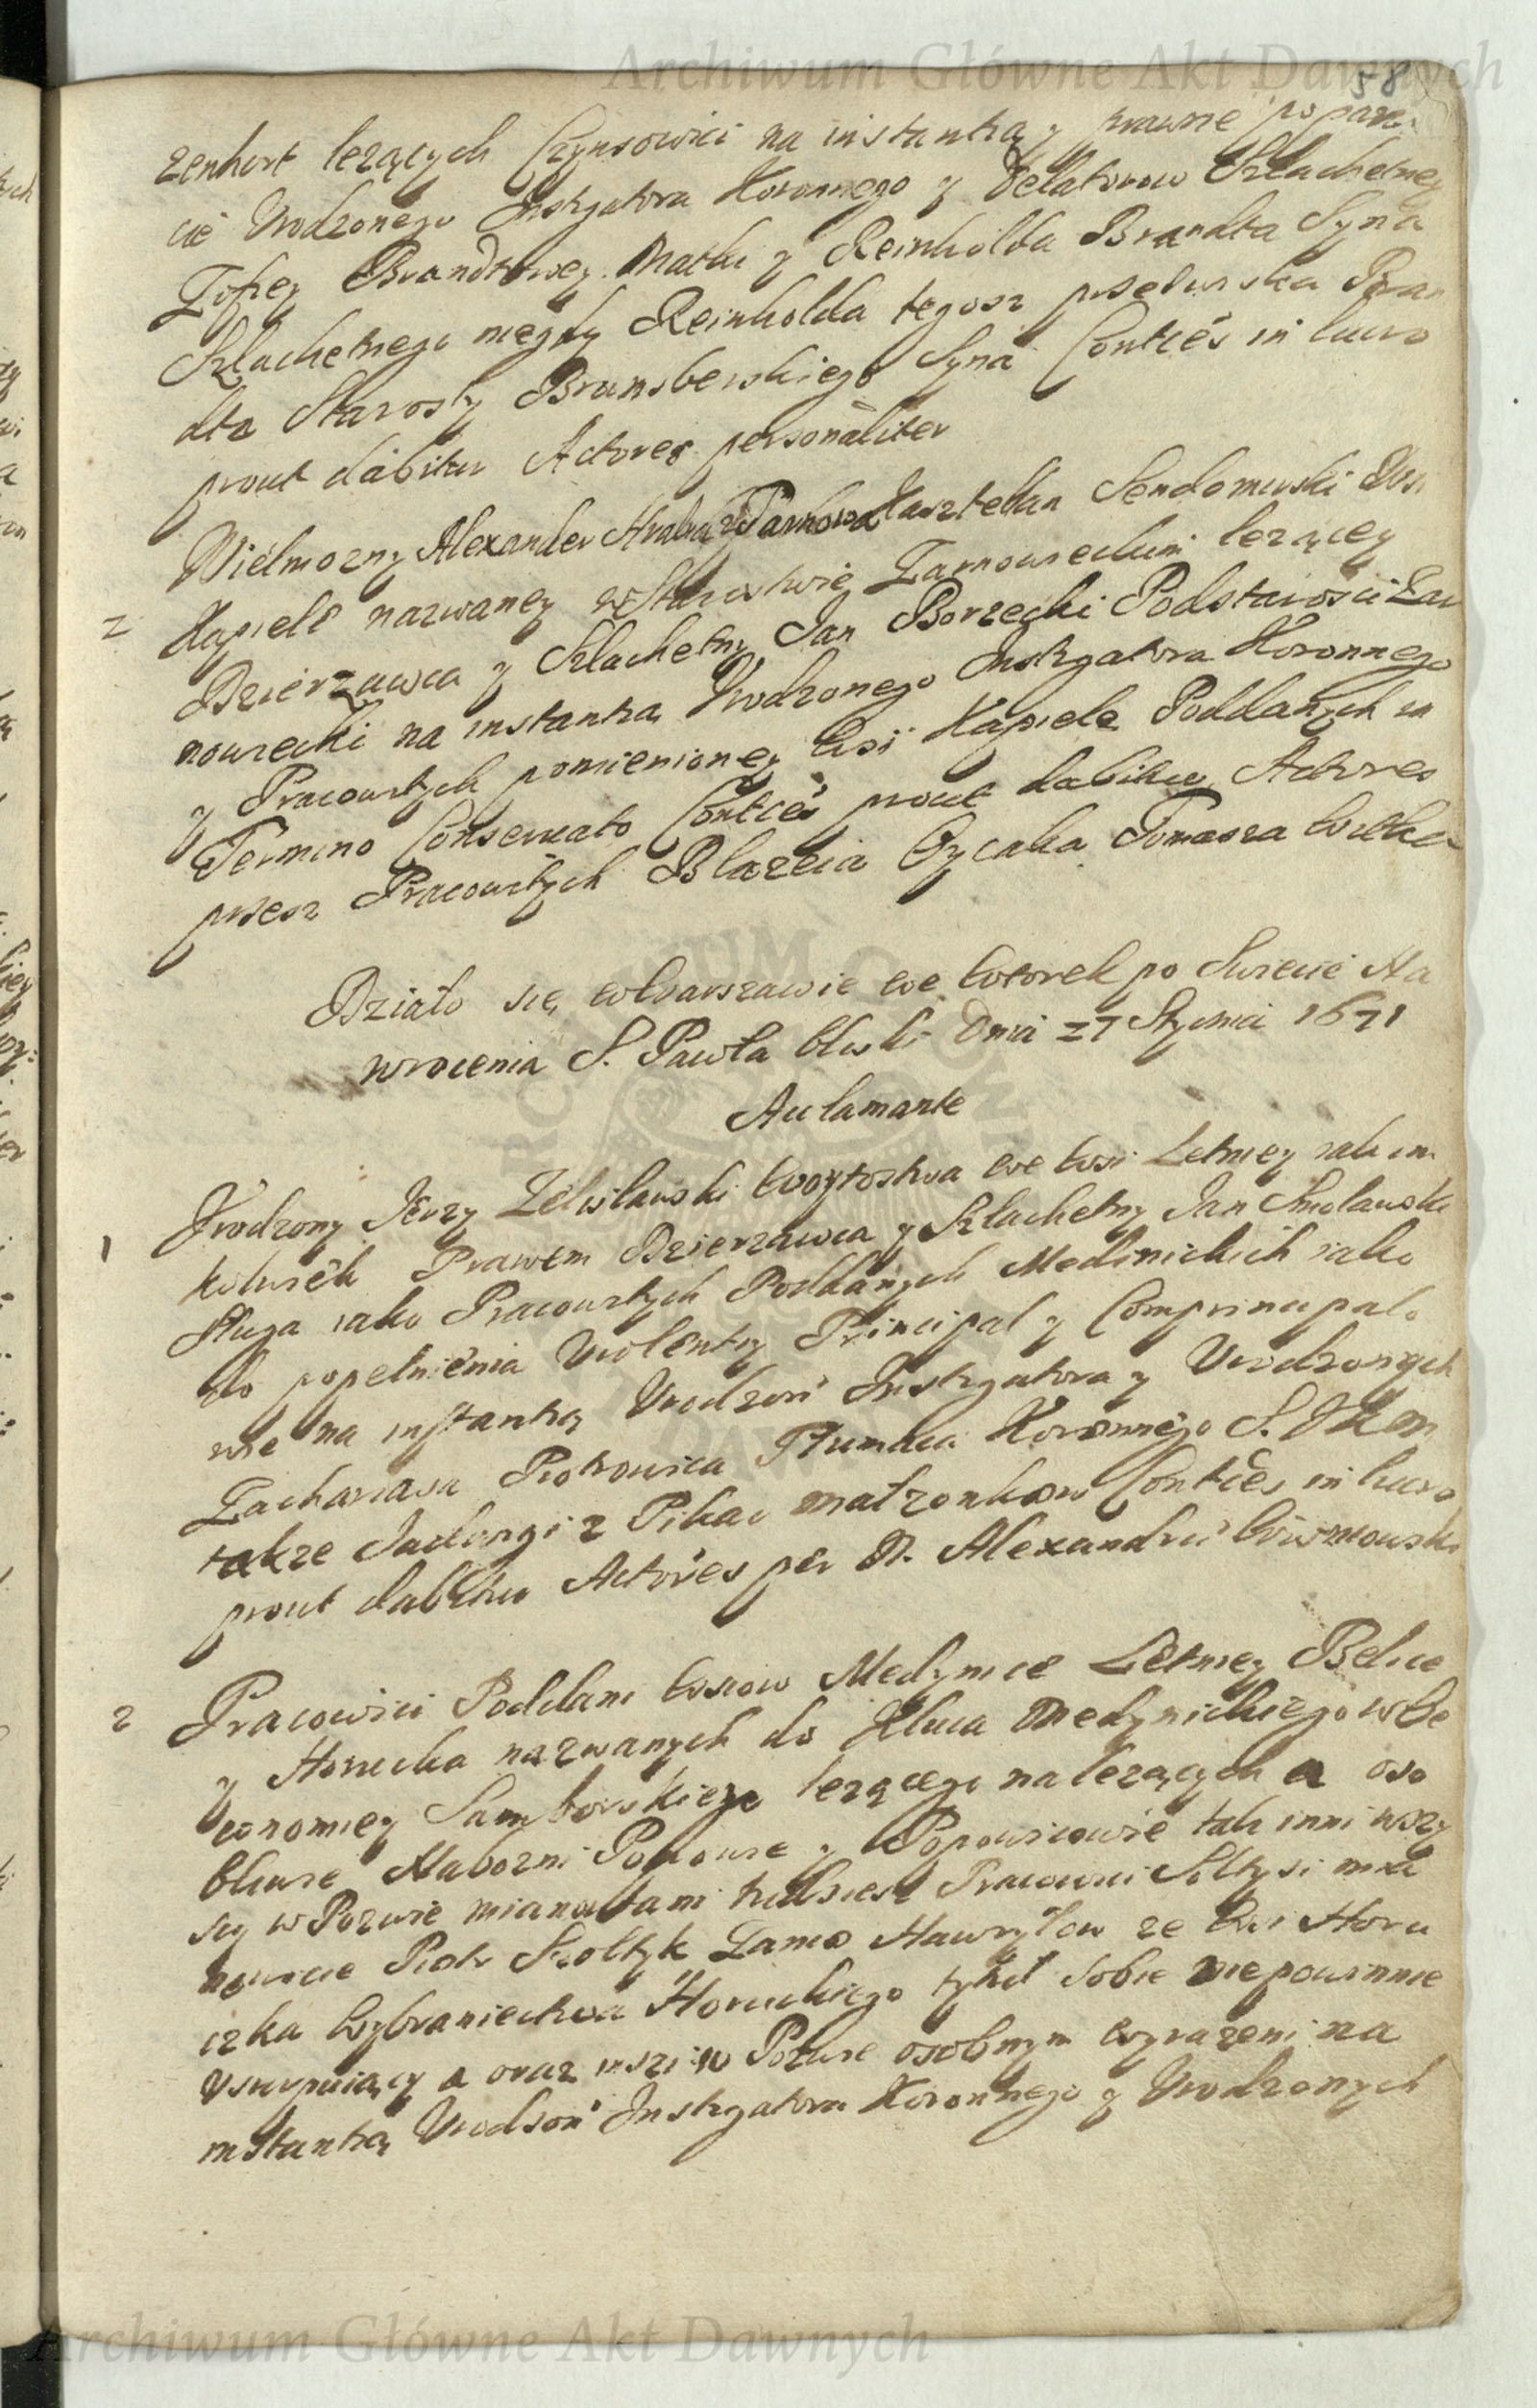 Archiwum Główne Akt Dawnych
58
zenhort leżących Czynsowici na instantią y prawne poparz
cie Urodzonego Instygatora Koronnego y Delatorow Szlachetney
Zofiey Brandtowey Matki y Reinholda Brandta Syna
Szlachetnego niegdy Reinholda tegosz przeluiska Bran
dta Starosty Brunsberskiego Syna Conties in lucro
prout dabitur Actores personaliter
Wielmozny Alexander Hrabia z Tarnowa Kasztellan Sendomirski Wsi
2 Kąpiele nazwaney w Starostwie Zarnowieckim leżącey
Dzierzawca y Szlachetny Jan Borzecki Podstarości Zar
nowiecki na instantią Urodzonego Instygatora Koronnego
y Pracowitych pomienioney Wsi Kąpiele Poddanych in
Termino Conservato Conties prout dabitur Actores
przesz Pracowitych Błazeia Tomasza
Działo się wWarszawie we Wtorek po Swięcie Na
wrocenia S. Pawła bliski Dnia 27 Stycznia 1671
Aulamante
1 Urodzony Jerzy Zelisławski Woytostwa we Wsi Letniey iakim
kolwiek Prawem Dzierzawca y Szlachetny Jan Smolawski
Sługa iako Pracowitych Poddanych Medinickich iako
do popełnienia Violentiy Principał y Comprincipało
wie na instantią Urodzon Instygatora y Urodzonych
Zachariasza Piotrowica Tłumacza Koronnego S. J K M
także Jadwigi z Pikac małzonkow Conties in lucro
prout dabitur Actores per N. Alexandru Wisniowski
2 Pracowici Poddani Wsiow Medynice Letniey Bilcze
y Horucka nazwanych do Klucza Medynickiego w Œ
conomiey Samborskiego leżącego nalezących a oso
bliwie Nabozni Popowie y Popowicowie tak inni wszy
scy w Pozwie mianowani tudziesz Pracowici Sołtysi mia
nowicie Piotr Szołtyk Hawryłow ze Wsi Horu
czka Wybraniectwa Horuckiego tytuł sobie niepowinnie
Vsurpuiący a oraz inszi w Pozwie osobnym wyrazeni na
instantią Urodzon Instygatora Koronnego y Urodzonych
Archiwum Główne Akt Dawnych